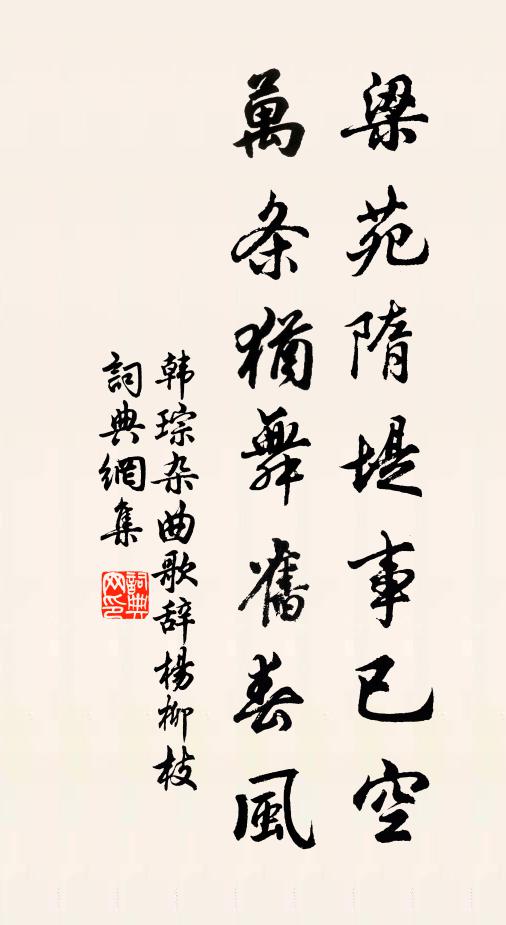 梁苑隋堤事已空
萬条猶舞舊春風
韩琮杂曲歌辞楊柳枝
詞典網集
詞典網印